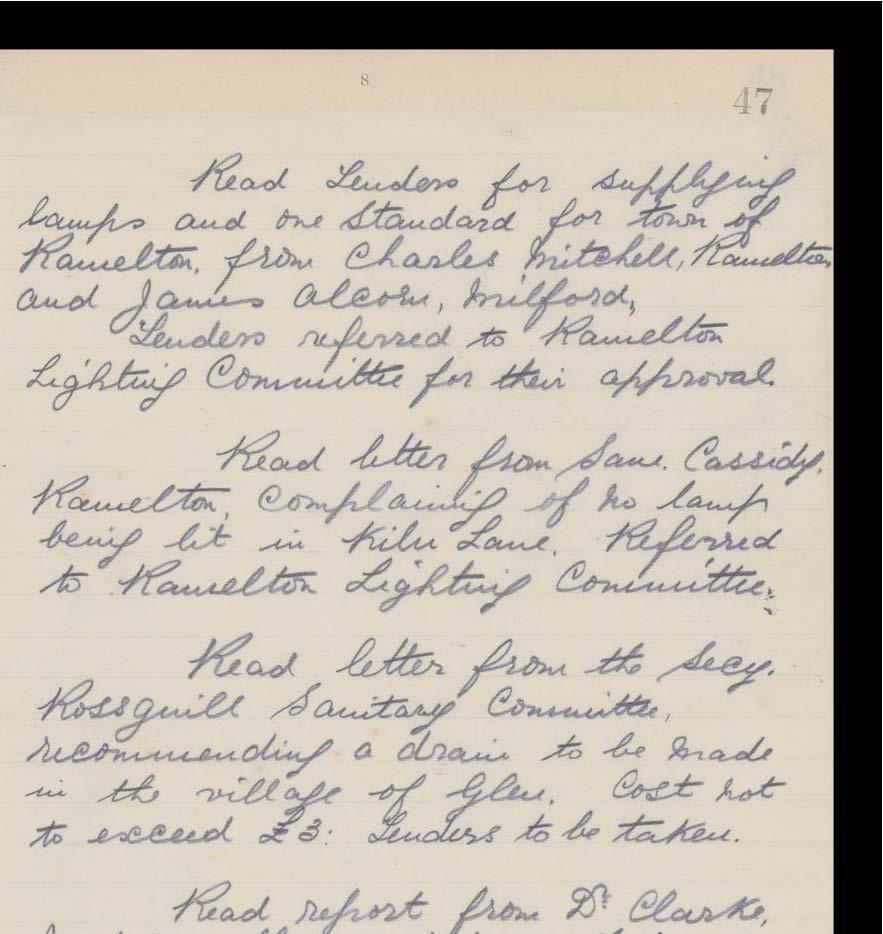 8
47
Read Tenders for supplying
lamps and one Standard for town of
Ramelton, from Charles Mitchell, Ramelton
and James Alcorn, Milford,
Tenders referred to Ramelton
Lighting Committee for their approval.
Read letter from Saml. Cassidy,
Ramelton, Complaining of no lamp
being lit in Kiln Lane. Referred
to Ramelton Lighting Committee.
Read letter from the Secy.
Rossguill Sanitary Committee,
recommending a drain to be made
in the village of Glen. Cost not
to exceed £3: Tenders to be taken.
Read report from Dr. Clarke,